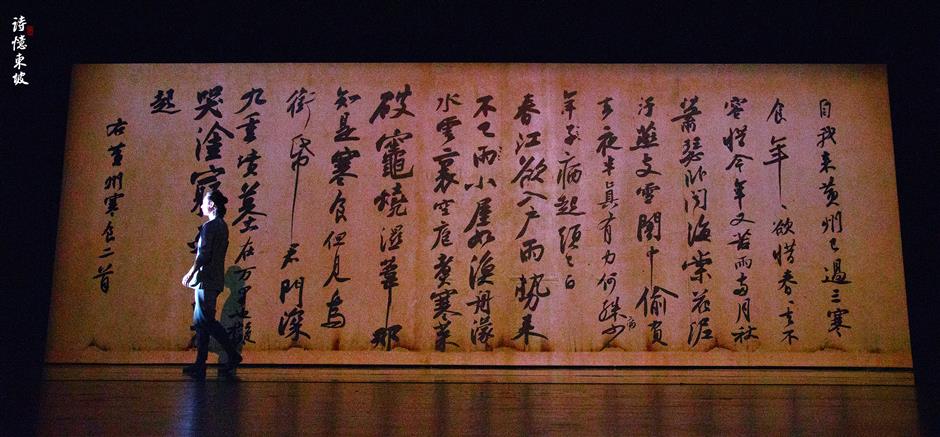 诗憶東坡
自我来黄州已過三寒
食年〻欲惜春〻去不
容惜今年又苦雨兩月秋
蕭瑟卧聞海棠花泥
汙燕支雪闇中偷負
去夜半真有力何殊少病
年子病起頭已白
春江欲入户雨勢来
不已雨小屋如漁舟濛
水雲裏空庖煑寒菜
破竈燒濕葦那
知是寒食但見烏
銜帋君門深
九重墳墓在万里也擬
哭塗窮
起
右黄州寒食二首